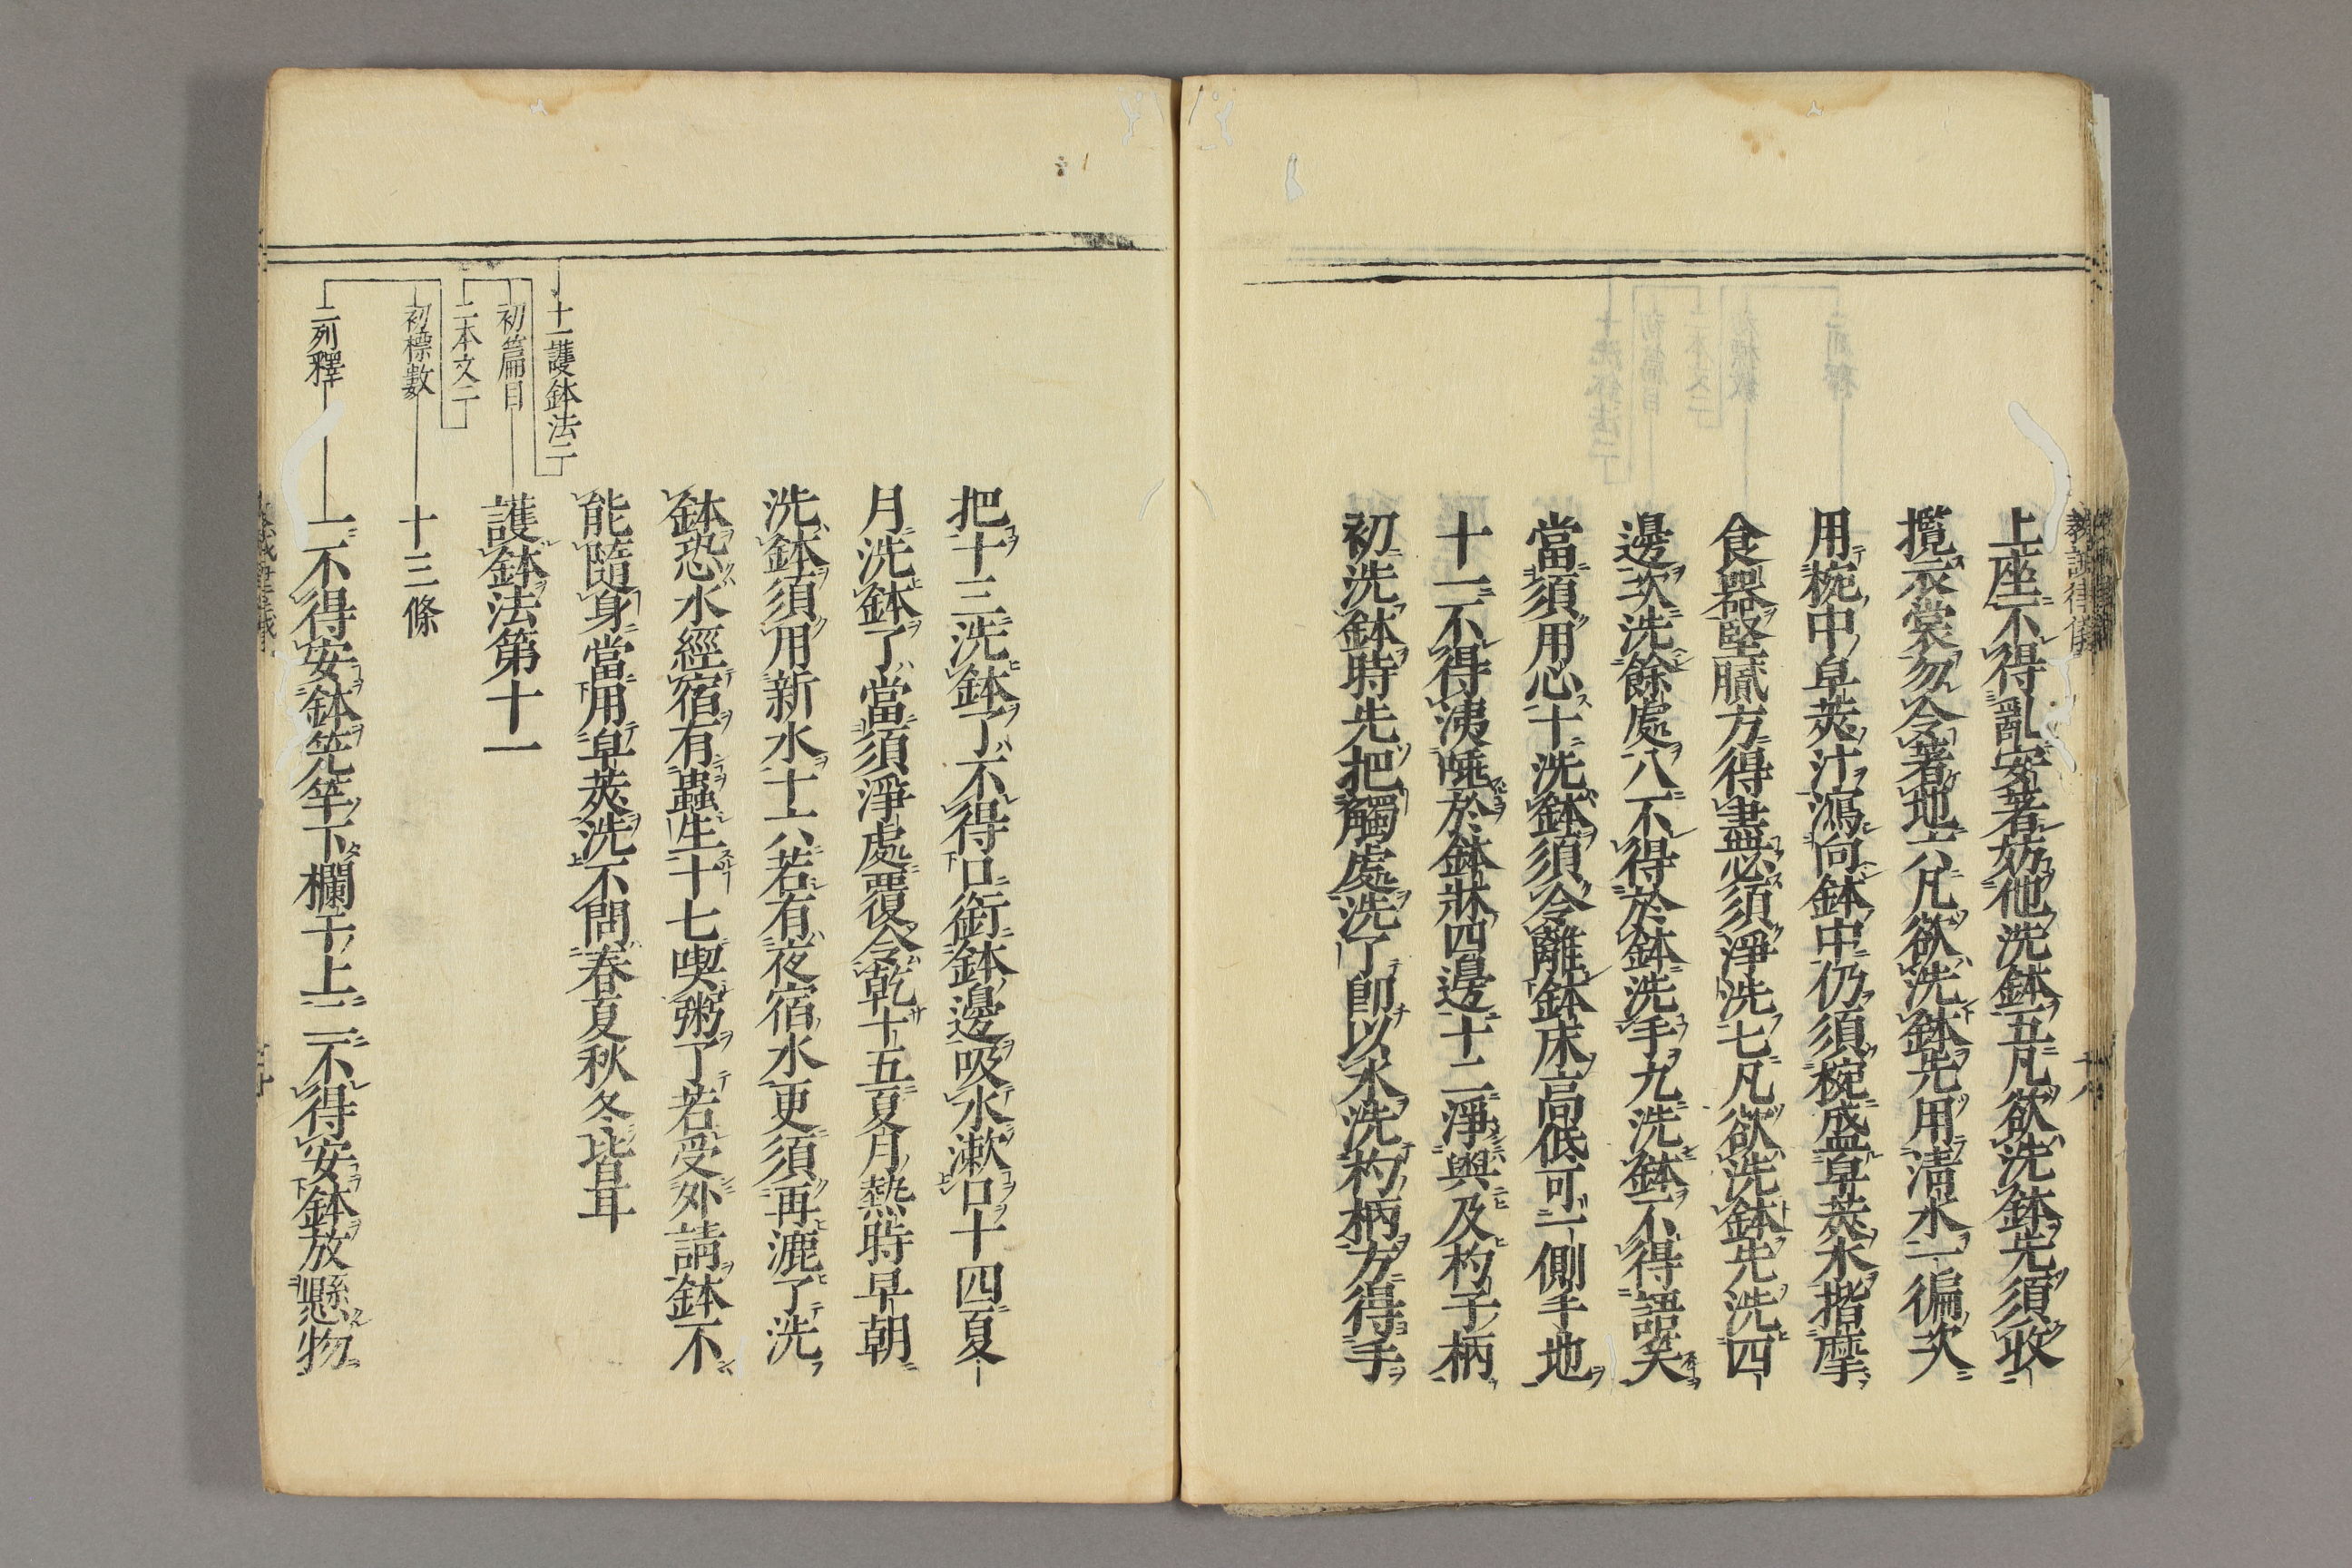 上座不得亂安著妨他洗鉢五凡欲洗鉢先須收
攬衣裳勿令著地六凡欲洗鉢先用淸水一徧次
用椀中皁莢汁瀉向鉢中仍須椀盛皁莢水揩摩
食器堅膩方得盡必須淨洗七凡欲洗鉢先洗四
邊次洗餘處八不得於鉢洗手九洗鉢不得語笑
當須用心十洗鉢須令離鉢床高低可一側手地
十一不得洟唾於鉢牀四邊十二淨與及杓子柄
初洗鉢時先把觸處洗了即以水洗杓柄方得手
把十三洗鉢了不得口銜鉢邊吸水漱口十四夏
月洗鉢了當須淨處覆令乾十五夏月熱時早朝
洗鉢須用新水十六若有夜宿水更須再漉了洗
鉢恐水經宿有蟲生十七喫粥了若受外請鉢不
能隨身當用皁莢洗不問春夏秋冬皆耳
十一護鉢法二
初篇目
護鉢法第十一
二本文二
初標數
十三條
二列釋
一不得安鉢笐竿下欄干上二不得安鉢放懸物